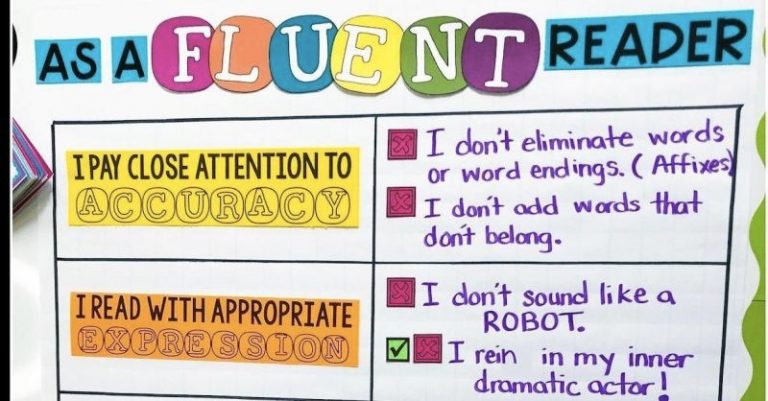 AS A FLUENT READER
I PAY CLOSE ATTENTION TO
ACCURACY
I don't eliminate words
or word endings. (Affixes)
I don't add words that
don't belong.
I READ WITH APPROPRIATE
EXPRESSION
I don't sound like a
ROBOT.
I rein in my inner
dramatic actor!